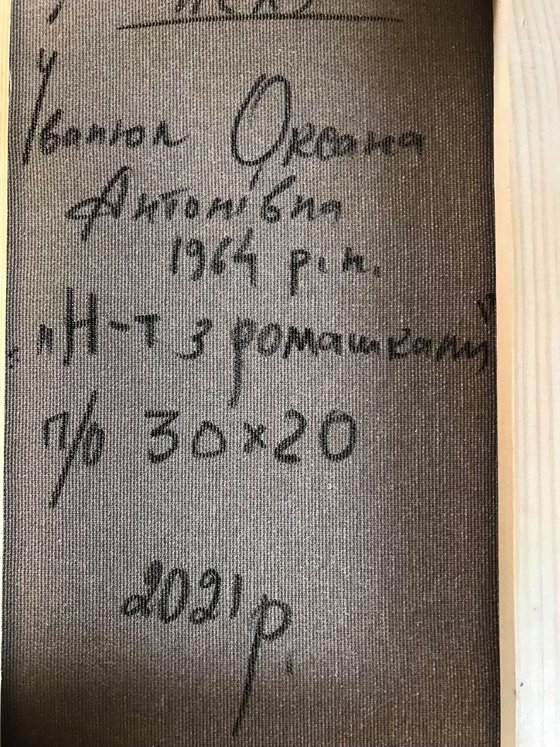 Іванюл Оксана
Антонівна
1964 р.н.
"Н-т з ромашками"
п/о 30х20
2021 р.